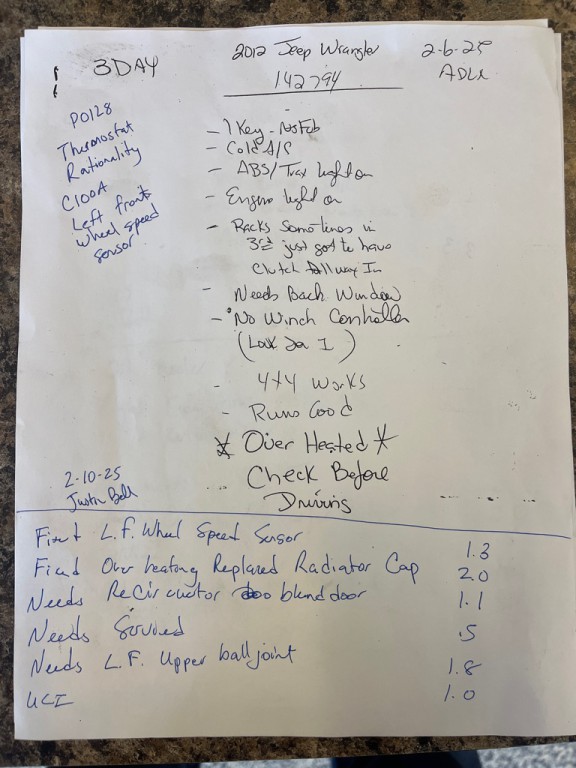 3DAY
2012 Jeep Wrangler
2-6-25
142794
P0128
Thermostat
Rationality
C100A
Left front
wheel speed
sensor
- 1 Key - No Fob
- Cold A/C
- ABS/Trax light on
- Engine light on
- Racks Sometimes in
3rd just got to have
Clutch All way In
- Needs Back Window
- No Winch Controller
(Look for 1)
- 4x4 Works
- Runs Good
* Over Heated *
Check Before
Driving
2-10-25
Justin Bell
Fixed L.F. Wheel Speed Sensor 1.3
Fixed Over heating Replaced Radiator Cap 2.0
Needs blend door 1.1
Needs Serviced .5
Needs L.F. Upper ball joint 1.8
UCI 1.0